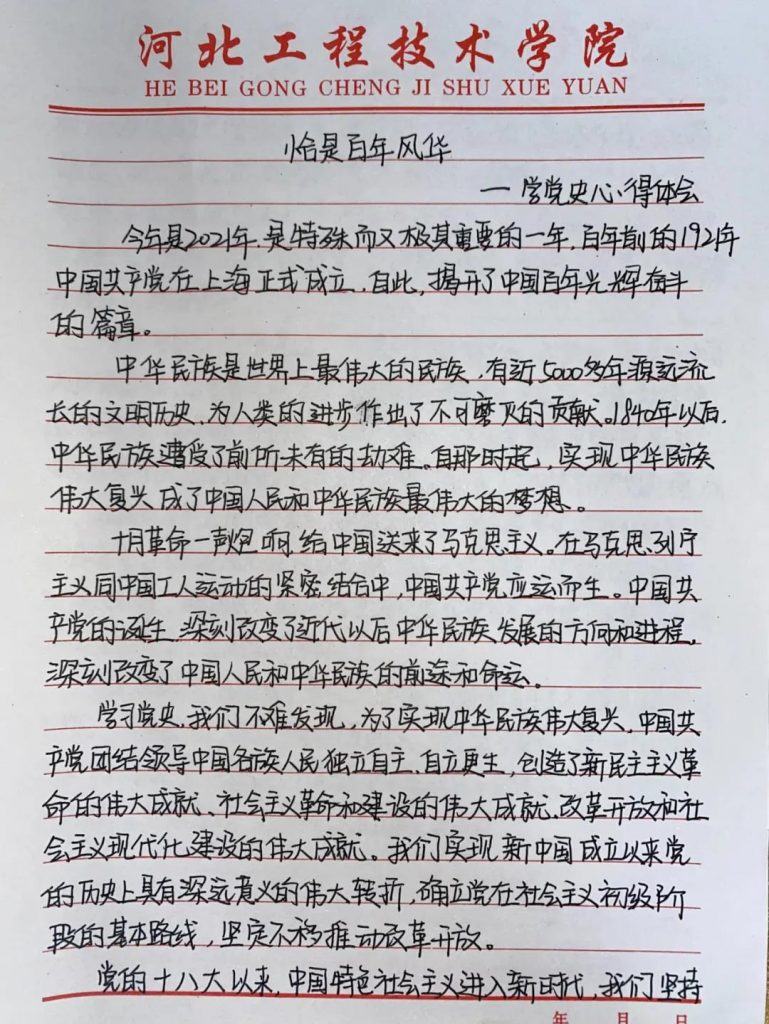 河北工程技术学院
HE BEI GONG CHENG JI SHU XUE YUAN
恰是百年风华
— 学党史心得体会
今年是2021年,是特殊而又极其重要的一年,百年前的1921年
中国共产党在上海正式成立,自此,揭开了中国百年光辉奋斗
的篇章。
中华民族是世界上最伟大的民族,有近5000多年源远流
长的文明历史,为人类的进步作出了不可磨灭的贡献。1840年以后,
中华民族遭受了前所未有的劫难。自那时起,实现中华民族
伟大复兴成了中国人民和中华民族最伟大的梦想。
十月革命一声炮响,给中国送来了马克思主义。在马克思列宁
主义同中国工人运动的紧密结合中,中国共产党应运而生。中国共
产党的诞生,深刻改变了近代以后中华民族发展的方向和进程,
深刻改变了中国人民和中华民族的前途和命运。
学习党史,我们不难发现,为了实现中华民族伟大复兴,中国共
产党团结领导中国各族人民独立自主、自立更生,创造了新民主主义革
命的伟大成就、社会主义革命和建设的伟大成就、改革开放和社
会主义现代化建设的伟大成就。我们实现新中国成立以来党
的历史上具有深远意义的伟大转折,确立党在社会主义初级阶
段的基本路线,坚定不移推动改革开放。
党的十八大以来,中国特色社会主义进入新时代,我们坚持
年 月 日